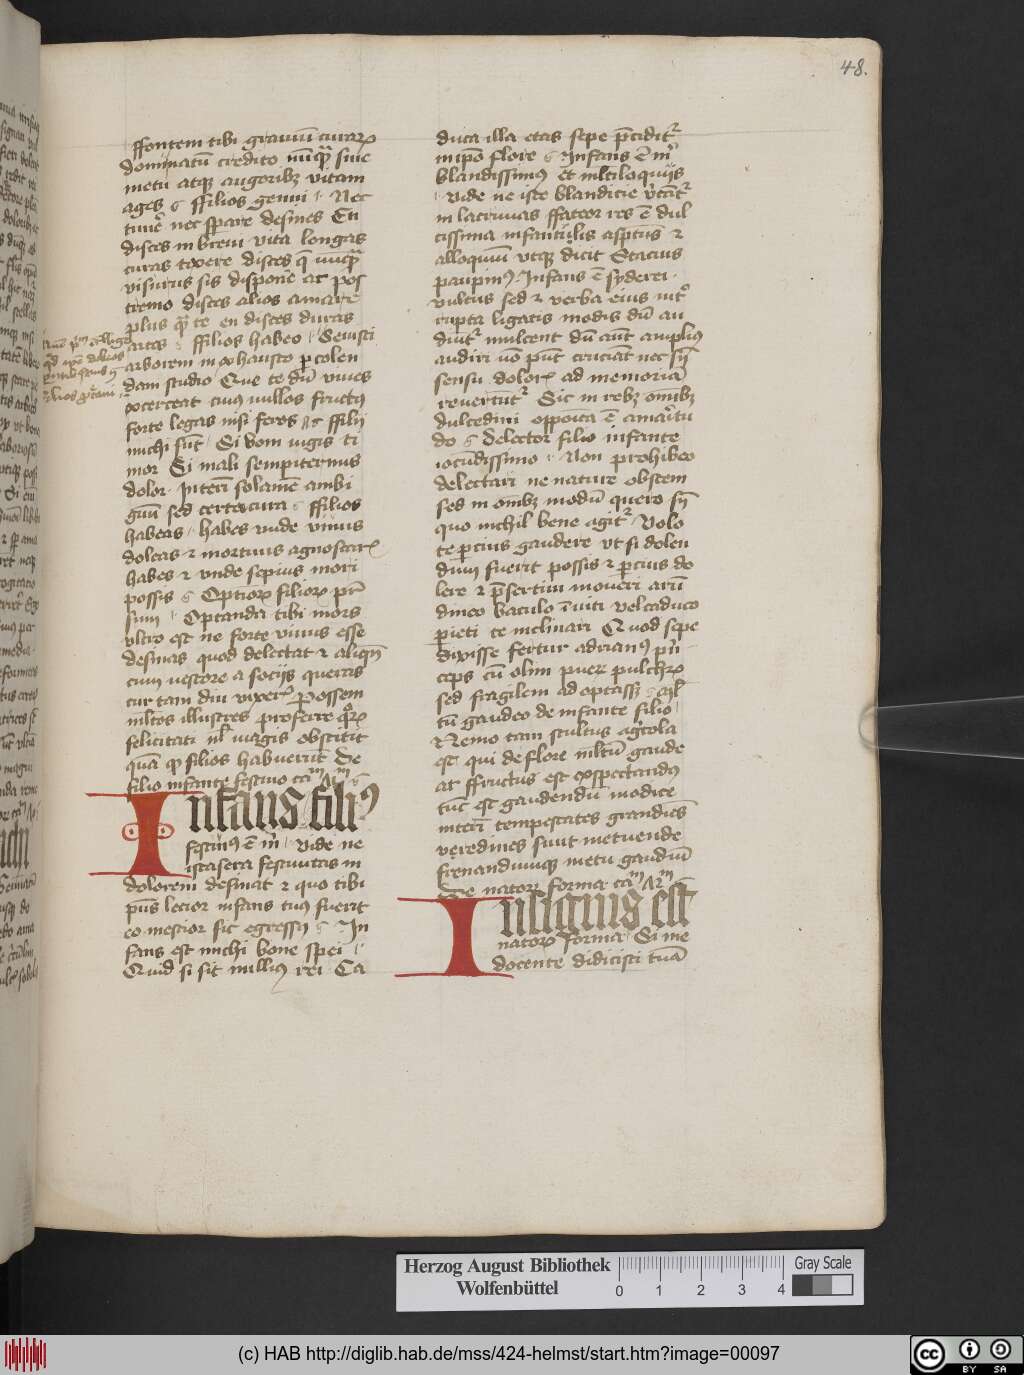 48.
ffontem tibi grauiū curaꝝ
dominatū credito nūqͣ sine
metu atqꝫ angoribꝫ vitam
ages ffilios genui Nec
timē nec spare desines En
disces in breui vita longas
curas texere disces q̄ nūqͣ
visurus sis disponē ac pos
tremo disces alios amare
plus qͣ te en disces duras
artes ffilios habeo Seuisti
arborem inexhausto p colen
dam studio Que te dū viues
exerceat cuiꝰ nullos fructꝰ
forte legas nisi feres Ac ffilij
michi sūt Si boni iugis ti
mor Si mali sempiternus
dolor Interī solamē ambi
guū sed certa cura ffilios
habeas habes vnde viuus
doleas ⁊ mortuus agnoscaris
habes ⁊ vnde sepius mori
possis Optioꝝ filioꝝ pr̄
sum Optanda tibi mors
vltro est ne forte viuus esse
desinas quod delectat ⁊ aliqn̄
cum nestore a socijs queras
cur tam diu vixeris Possem
ml̄tos illustres proferre qͦꝝ
felicitati nl̄ magis obstitit
quā qp filios habuerūt De
filio infante festiuo caᵐ
Infans filiꝰ
festiuꝰ ē m̄ Vide ne
ista sera festiuitas in
dolorem desinat ⁊ quo tibi
p̄ns lecior infans tuꝰ fuerit
eo mestior sic egressꝰ In
fans est michi bone spei
Quid si sit nulliꝰ rei Ca
duca illa etas sepe p̄cidit᷑
in ip̄o flore Infans ē m̄
blandissimꝰ et in ml̄tiloquijs
Vide ne iste blandicie
in lacrimas ffateor res ē dul
cissima infantilis aspectus ⁊
alloquium vtqꝫ dicit Stacius
paupinꝰ Infans ē syderei
vultus sed ⁊ verba eius int̉
rupta ligatis modis dū au
diūt᷑ mulcent dū cūt ampliꝰ
audiri nō p̄nt cruciāt nec sn̄
sensu doloꝝ ad memoriā
reuertūt᷑ Sic in rebꝫ omībꝫ
dulcedini opposita ē amaritu
do Delector filio infante
iocūdissimo Non prohibeo
delectari ne nature obstem
sed in omībꝫ modū quero sn̄
quo nichil bene agit᷑ Volo
te parcius gaudere vt si dolen
dum fuerit possis ⁊ parcius do
lere ⁊ p̄sertim moueri arū
dineo baculo īniti vel caduco
pieti te inclinari Quod sepe
dixisse fertur adrianꝰ prin
ceps cū olim puer pulchꝝ
sed fragilem adoptass
tū gaudeo de infante filio
Nemo tam stultus agricola
est qui de flore ml̄tū gaude
at ffructus est exspectandꝰ
tūc est gaudendū modice
interī tempestates grandines
veredines sunt metuende
frenandumqꝫ metu gaudiū
De natoꝝ forma caᵐ
Insignis est
natoꝝ forma Si me
docente didicisti tuā
Herzog August Bibliothek
Wolfenbüttel
0 1 2 3 4
Gray Scale
(c) HAB http://diglib.hab.de/mss/424-helmst/start.htm?image=00097
cc BY SA